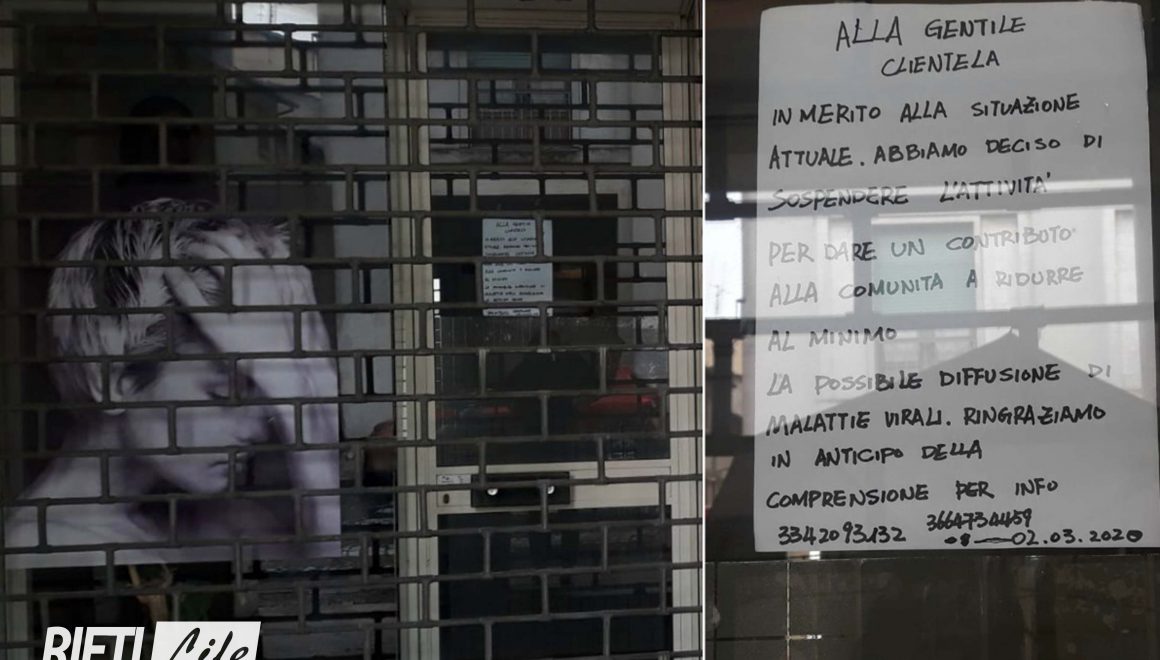 ALLA GENTILE
CLIENTELA
IN MERITO ALLA SITUAZIONE
ATTUALE. ABBIAMO DECISO DI
SOSPENDERE L'ATTIVITA'
PER DARE UN CONTRIBUTO
ALLA COMUNITA A RIDURRE
AL MINIMO
LA POSSIBILE DIFFUSIONE DI
MALATTIE VIRALI. RINGRAZIAMO
IN ANTICIPO DELLA
COMPRENSIONE PER INFO
3342093132 3664734459
02.03.2020
RIETI Life